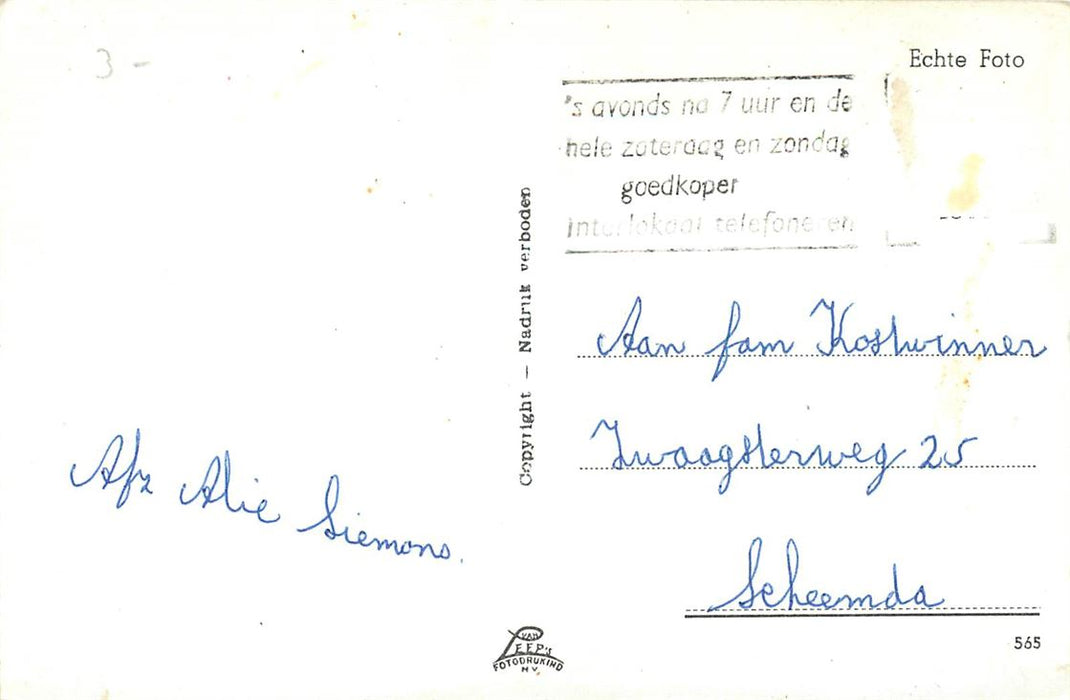 3-
Echte Foto
's avonds na 7 uur en de
hele zaterdag en zondag
goedkoper
interlokaal telefoneren
Copyright — Nadruk verboden
Aan fam Kostwinner
Zwaagsterweg 25
Scheemda
Afz Alie Siemons.
VAN
LEER'S
FOTODRUKIND
N.V.
565